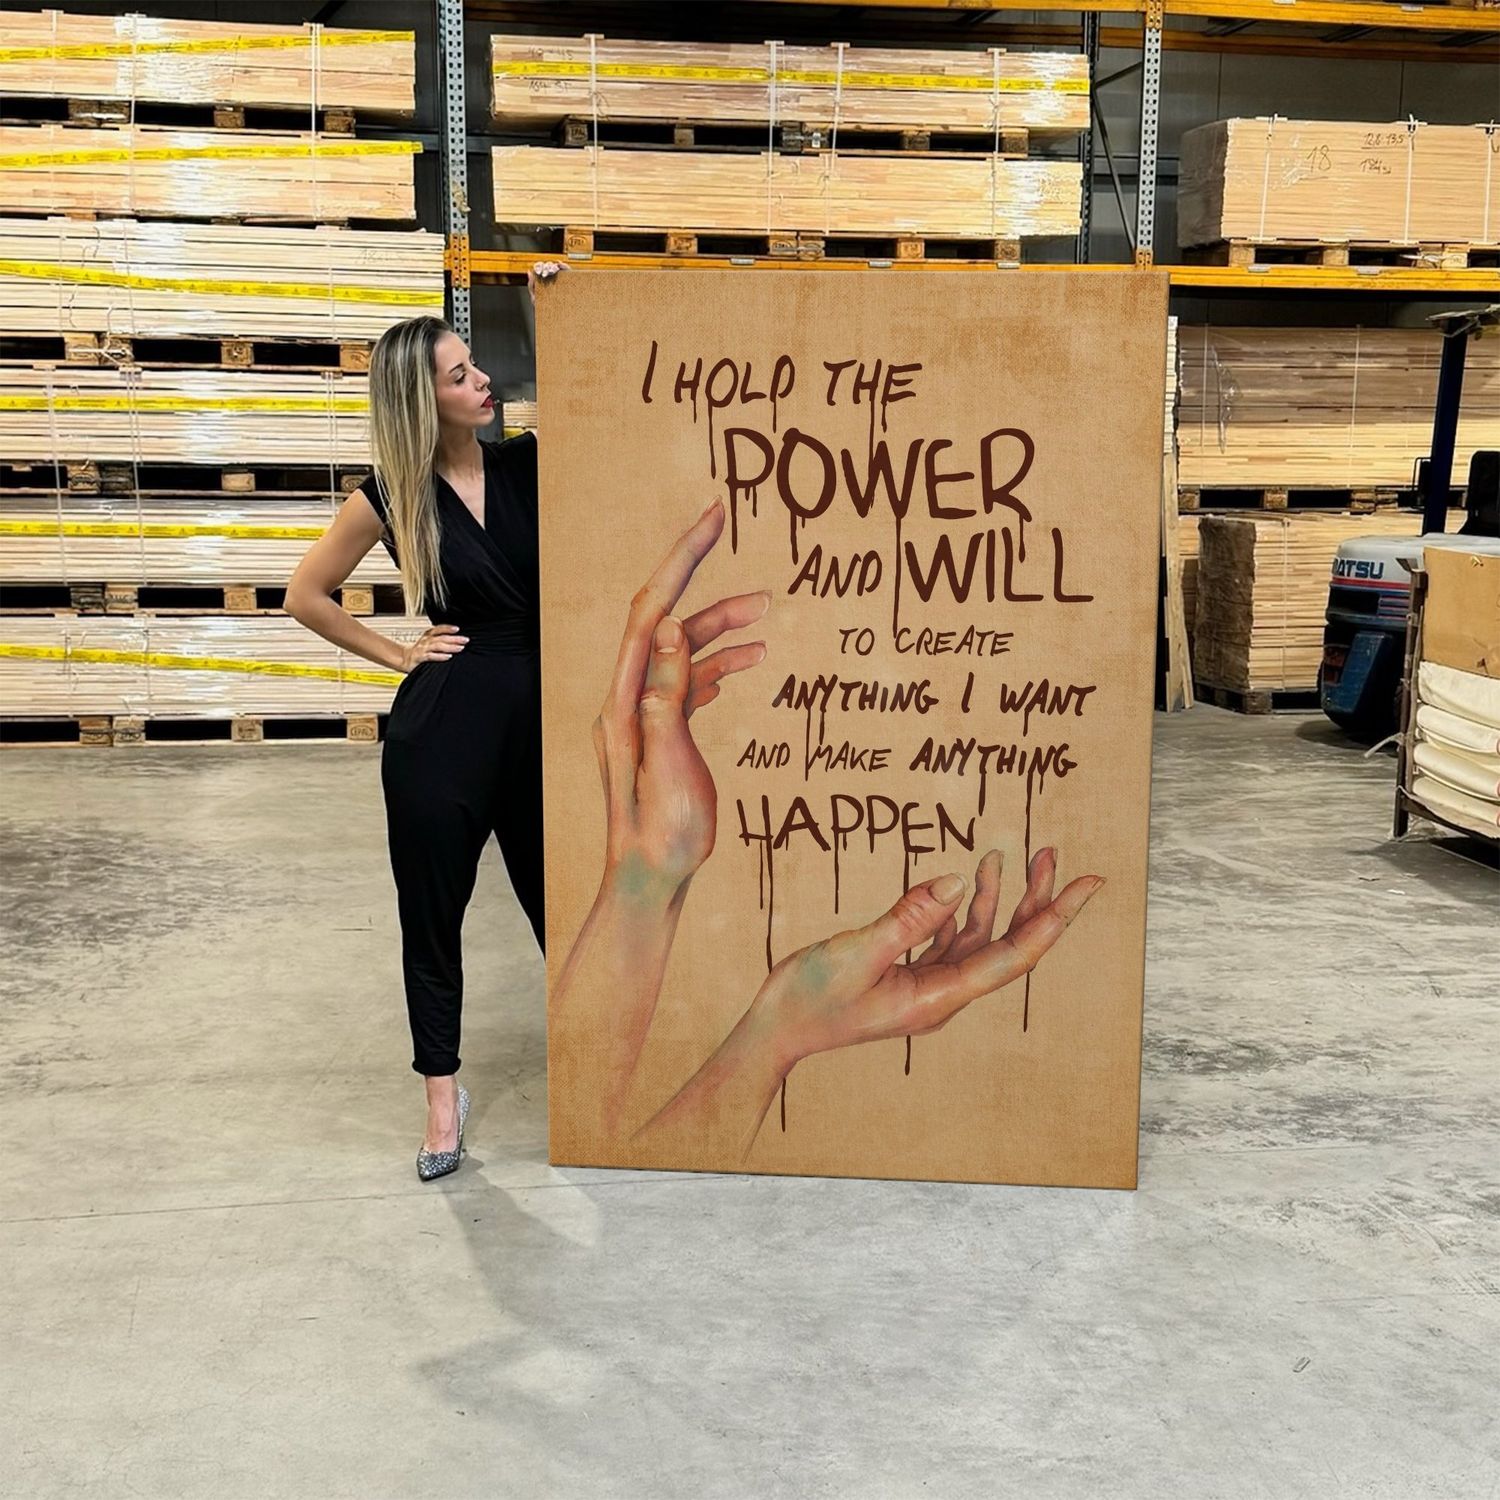 I HOLD THE
POWER
AND WILL
TO CREATE
ANYTHING I WANT
AND MAKE ANYTHING
HAPPEN
18